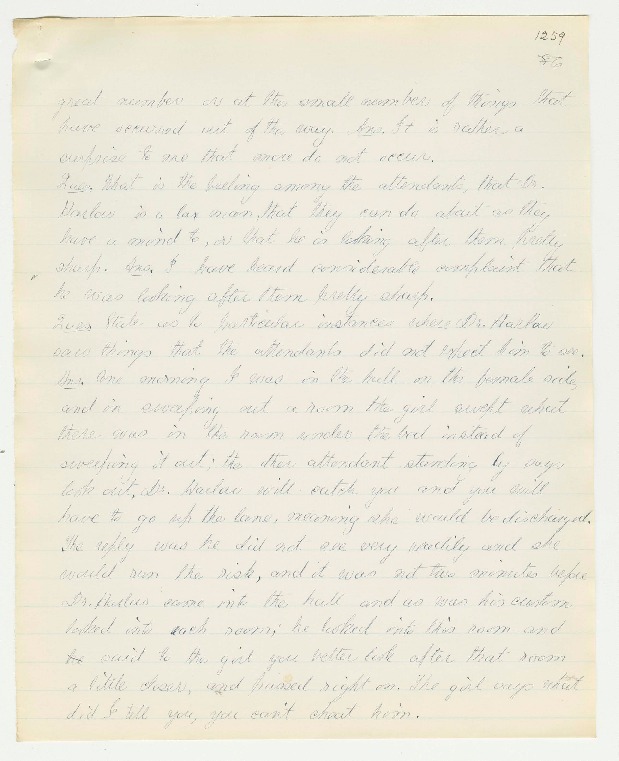 1259
great number as at the small number of things that
have occurred out of the way. Ans. It is rather a
surprise to me that more do not occur.
Ques. What is the feeling among the attendants, that Dr.
Harlow is a lax man, that they can do about as they
have a mind to, or that he is looking after them pretty
sharp. Ans. I have heard considerable complaint that
he was looking after them pretty sharp.
Ques State as to particular instances where Dr. Harlow
saw things that the attendants did not expect him to see.
Ans. One morning I was in the hall on the female side,
and in sweeping out a room the girl swept what
there was in the room under the bed instead of
sweeping it out; the other attendant standing by says
look out, Dr. Harlow will catch you and you will
have to go up the lane, meaning she would be discharged.
The reply was he did not see very readily and she
would run the risk, and it was not two minutes before
Dr. Harlow came into the hall and as was his custom
looked into each room; he looked into this room and
he said to the girl you better look after that room
a little closer, and passed right on. The girl says what
did I tell you, you can't cheat him.